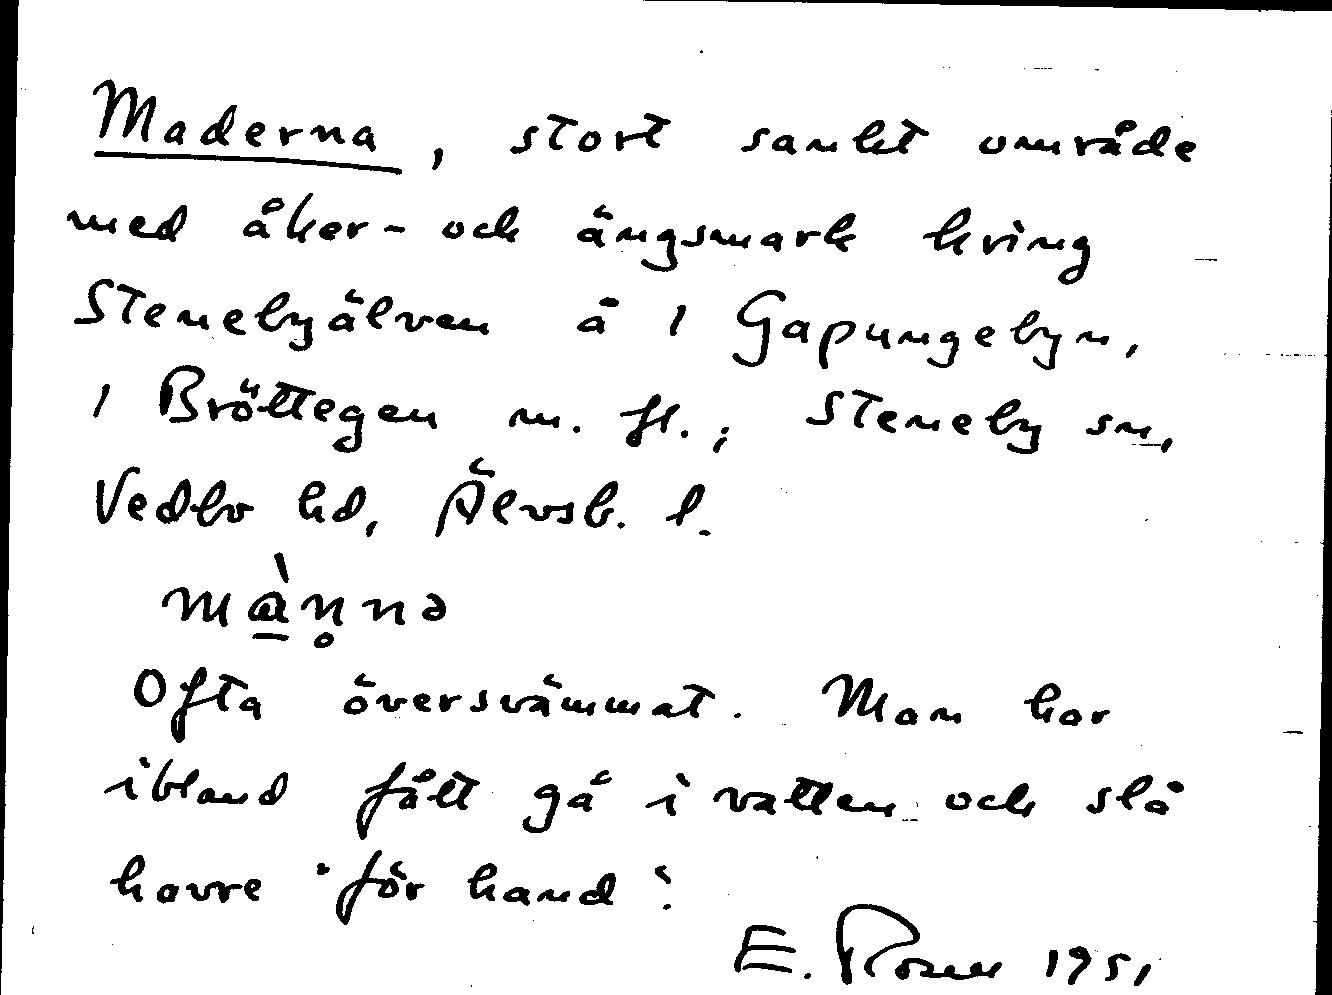 Maderna, stort sankt område
med åker- och ängsmark kring
Stenebyälven å 1 Gapungebyn,
1 Bröttegen m. fl.; Steneby sn,
Vedbo hd, Älvsb. l.
mà̱n̥nə
Ofta översvämmat. Man har
ibland fått gå i vatten och slå
havre "för hand".
E. Rosell 1951